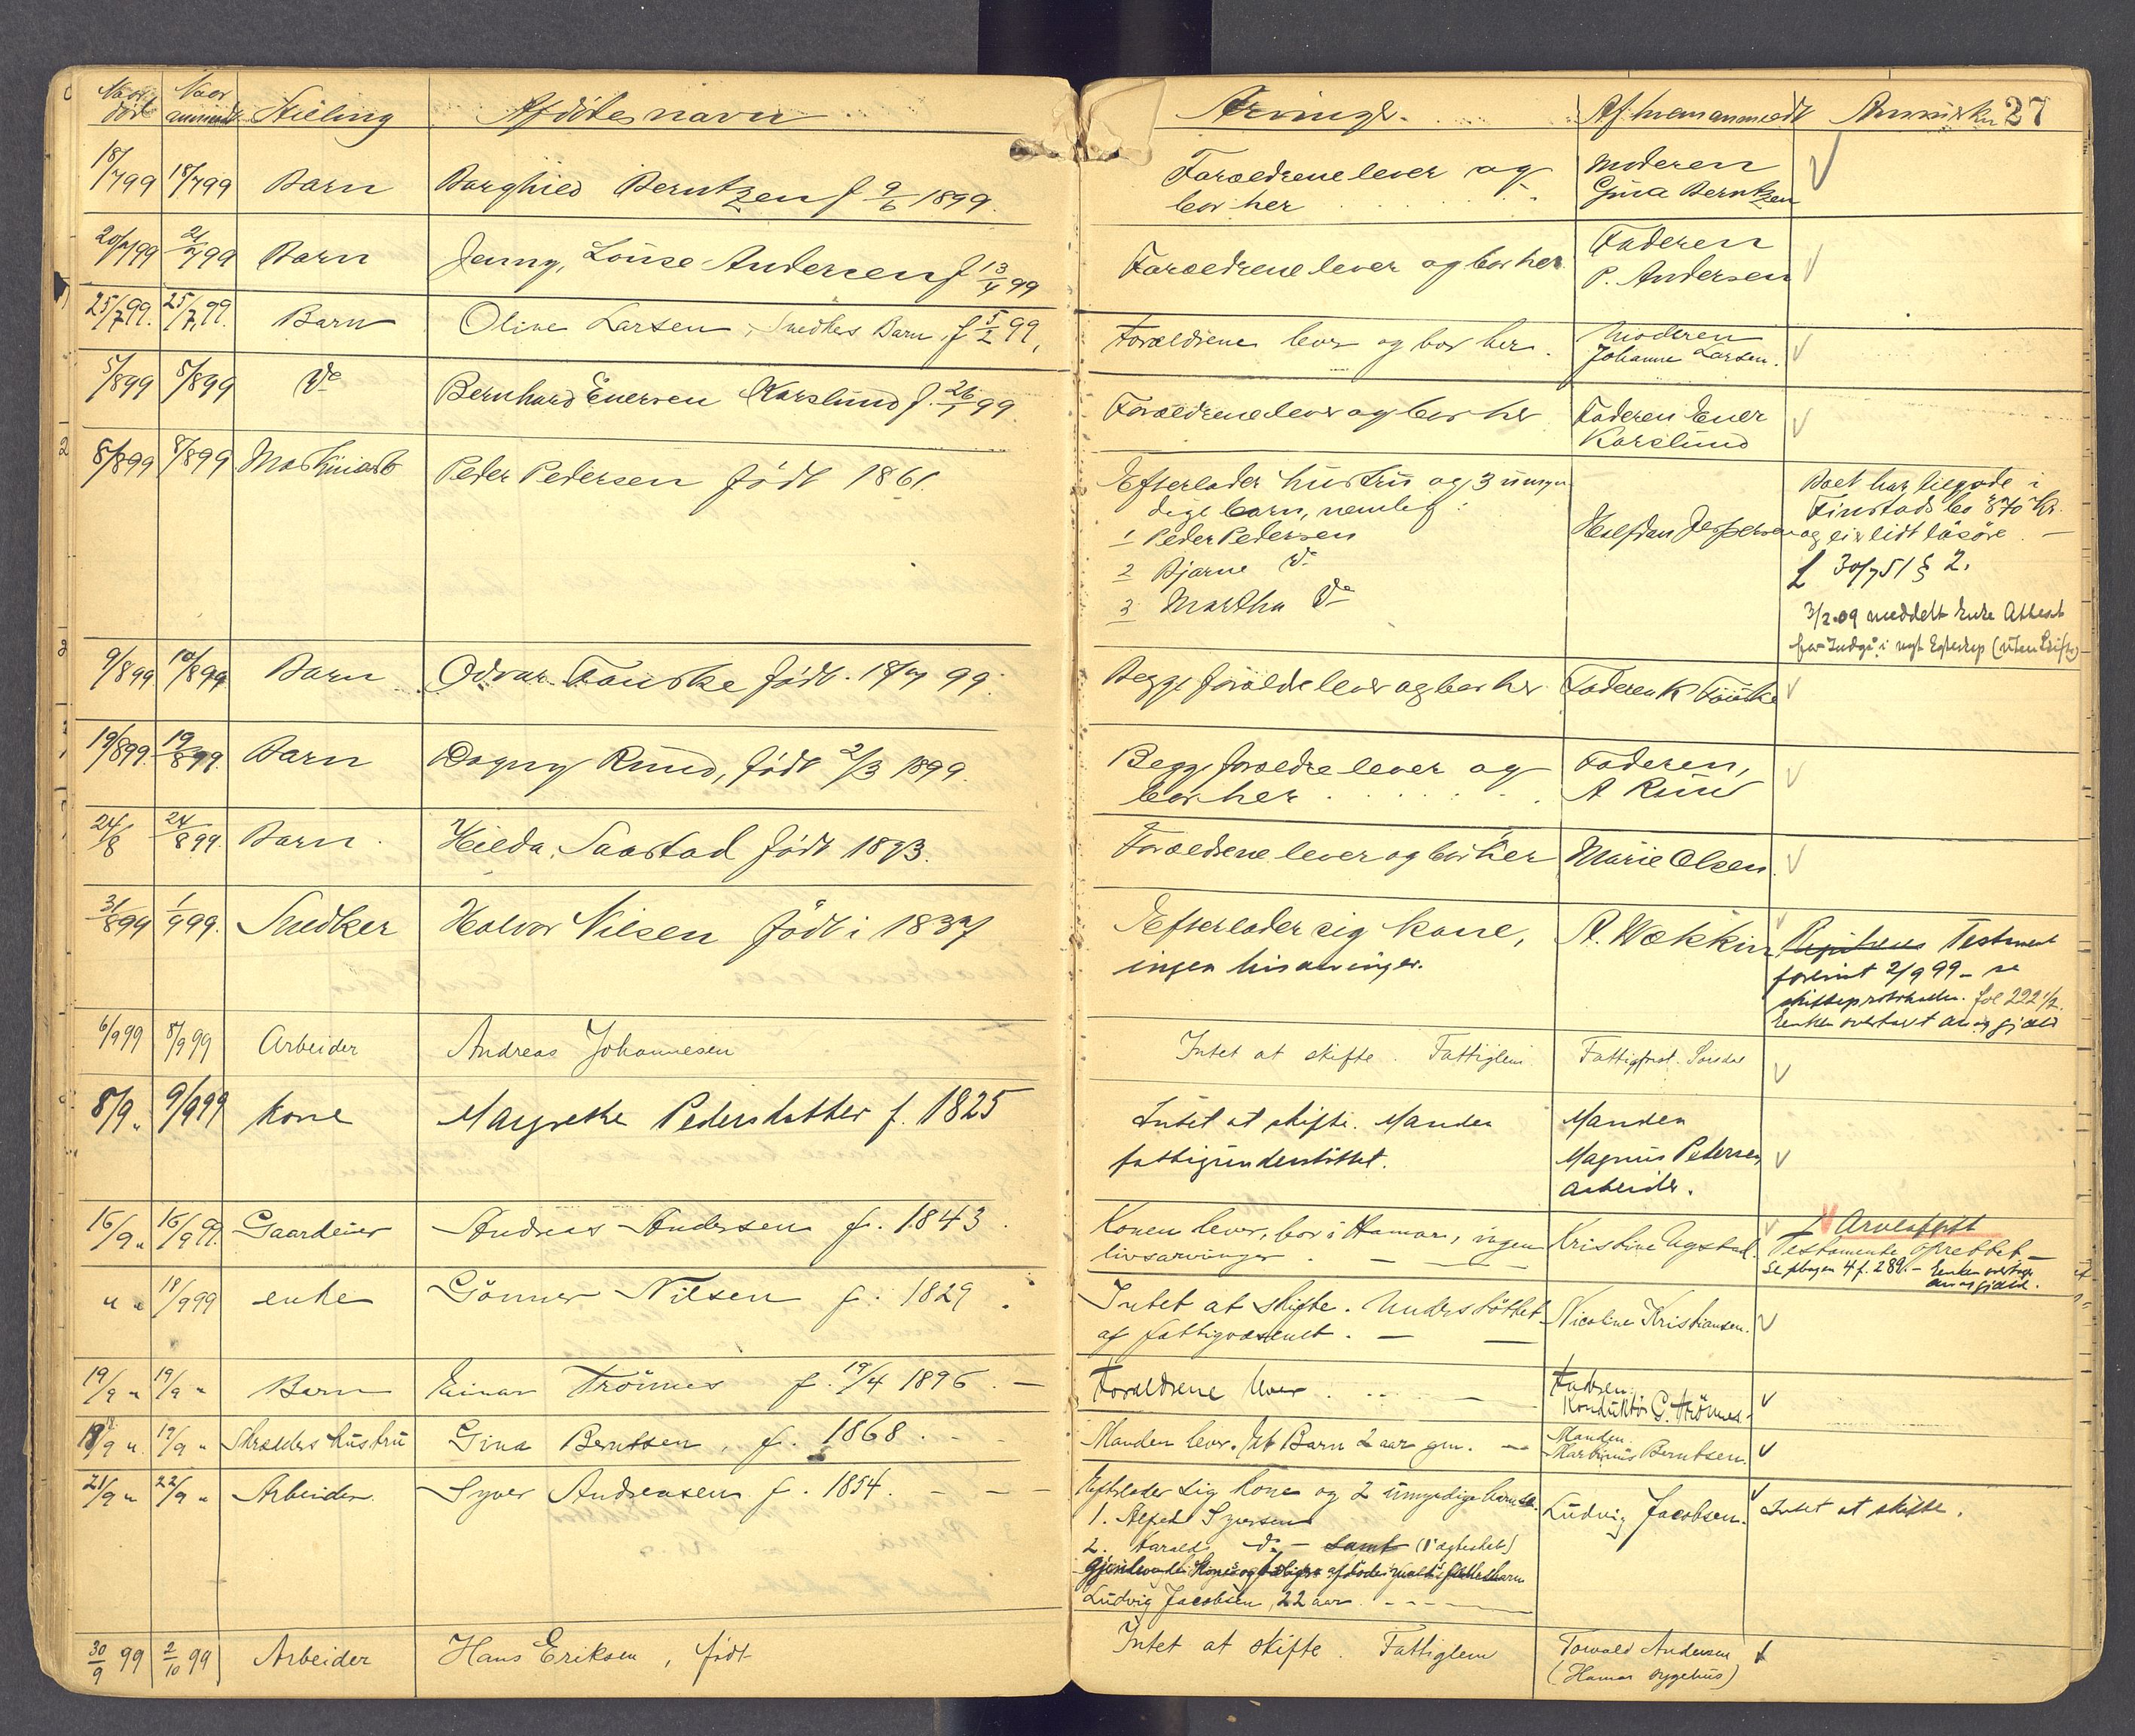 Naar Naar
död anmeldt Stilling Afdödes navn Arvinger. Af hvem anmeldt Anmærkn 27
18/7 99 18/7 99 Barn Borghild Berntzen f 9/6 1899. Forældrene lever og Moderen
bor her Gina Berntzen
20/7 99 21/7 99 Barn Jenny, Louise Andersen f 13/4 99 Forældrene lever og bor her Faderen
P. Andersen
25/7 99. 25/7 99. Barn Oline Larsen, Snedkers Barn, f 5/2 99, Forældrene lever og bor her. Moderen
Johanne Larsen.
5/8 99 5/8 99 Do Bernhard Enersen Karslund f. 26/1 99. Forældrene lever og bor her Faderen Ener
Karslund
8/8 99 8/8 99 Maskinarb Peder Pedersen födt 1861. Efterlader hustru og 3 umyn
dige barn, nemlig:
1 Peder Pedersen
2 Bjarne Do
3 Martha Do
Halfdan Jespersen
Boet har tilgode i
Finstads bo 870 Kr.
og eier lidt lösöre. —
L 30/7 51 § 2.
3/2.09 meddelt Enke Attest
for Indgå i nyt Egteskap (uten Skifte)
9/8 99 10/8 99 Barn Odvar Fauske födt. 18/7 99. Begge forældre lever og bor her Faderen K Fauske
19/8 99. 19/8 99. Barn Dagny Ruud, födt 2/3 1899 Begge forældre lever og Faderen,
bor her A Ruud
24/8 24/8 99. Barn. Hilda Saastad födt 1893. Forældrene lever og bor her Marie Olsen.
31/8 99 1/9 99. Snedker Halvor Nilsen födt i 1837 Efterlader sig kone, A. Wekkin Testament
ingen livsarvinger. forevist 2/9 99 - se
skifteprotokollen. fol 222 1/2.
Enken overtart arv og gjæld
6/9 99 8/9 99 Arbeider Andreas Johannesen Intet at skifte. Fattiglem Fattigforst. Sorsdal
8/9 " 9/9 99 Kone Margrethe Pedersdatter f. 1825 Intet at skifte. Manden Manden
fattigunderstöttet. Magnus Petersen,
arbeider.
16/9 " 16/9 99. Gaardeier Andreas Andersen f. 1843. Konen lever, bor i Hamar, ingen Kristine Agstad. L Arveafgift
livsarvinger. — Testamente oprettet —
Se pbogen 4 f. 289. — Enken overtager
arv og gjæld.
" " 18/9 99 enke Gönner Nilsen f. 1829. Intet at skifte. Understöttet Nicoline Kristiansen.
af fattigvæsenet. — —
19/9 " 19/9 " Barn Einar Trönnes f. 19/4 1896. — Forældrene lever. Faderen
Konduktör C. Trönnes.
18/9 " 19/9 " Skrædders hustru Gina Berntsen, f. 1868. - - Manden lever. Et Barn 2 aar gm. — Manden.
Martinius Berntsen.
21/9 " 22/9 " Arbeider. Syver Andreasen f. 1854. - - - Efterlader sig kone og 2 umyndige barn se. Ludvig Jacobsen. Intet at skifte.
1. Alfred Syversen
2. Harald do - samt (i ægteskab)
Ludvig Jacobsen, 22 aar. - - -
30/9 99 2/10 99 Arbeider Hans Eriksen, födt Intet at skifte. Fattiglem Torvald Andersen
(Hamar sygehus)